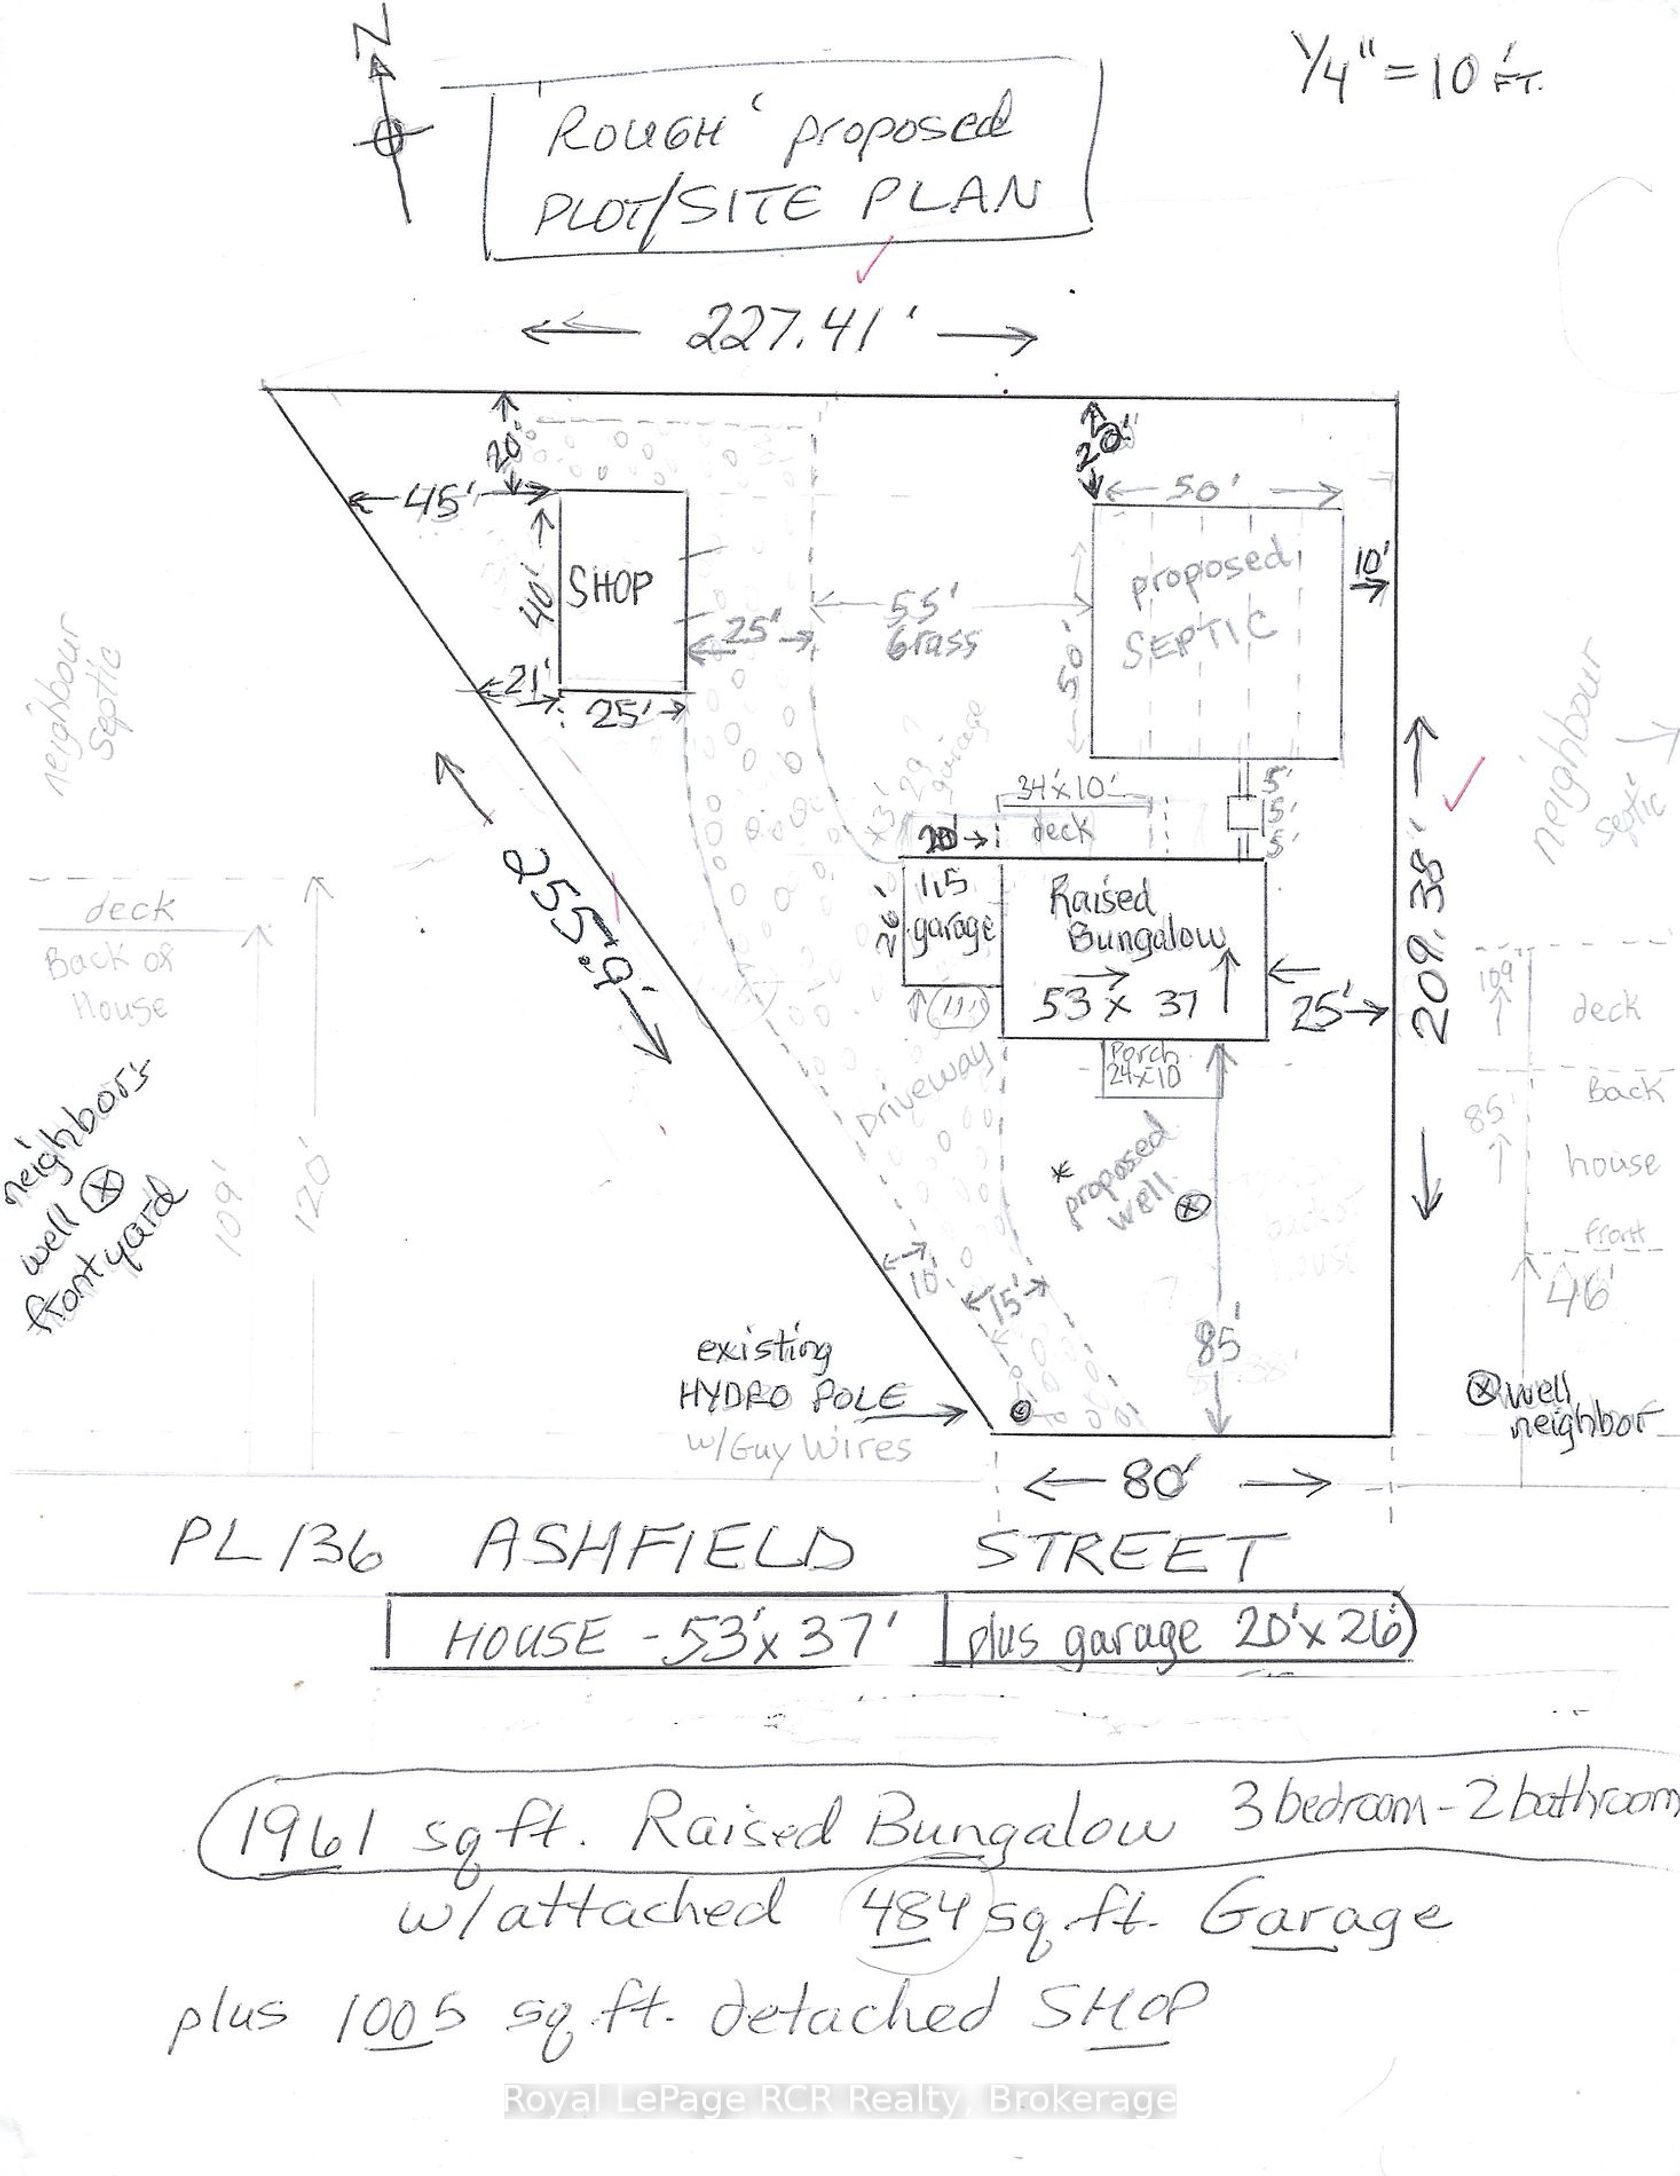 N
1/4" = 10 FT.
'ROUGH' proposed
PLOT/SITE PLAN
227.41'
20'
20'
45'
50'
40'
SHOP
proposed
SEPTIC
10'
55'
Grass
25'
50'
21'
25'
neighbour
septic
neighbour
septic
29'
garage
34'x10'
deck
5'
5'
5'
20
1.5
garage
26'
Raised
Bungalow
53 x 37
25'
209.38'
255.9'
deck
Back of
House
109'
deck
Porch
24x10
Driveway
85'
Back
house
front
46'
neighbor's
well
front yard
109'
120'
* proposed
well
10'
15'
85'
existing
HYDRO POLE
w/Guy Wires
well
neighbor
80'
PL 136 ASHFIELD STREET
HOUSE - 53'x 37' plus garage 20'x26'
1961 sqft. Raised Bungalow 3 bedroom - 2 bathroom
w/attached 484 sq.ft. Garage
plus 1005 sq.ft. detached SHOP
Royal LePage RCR Realty, Brokerage